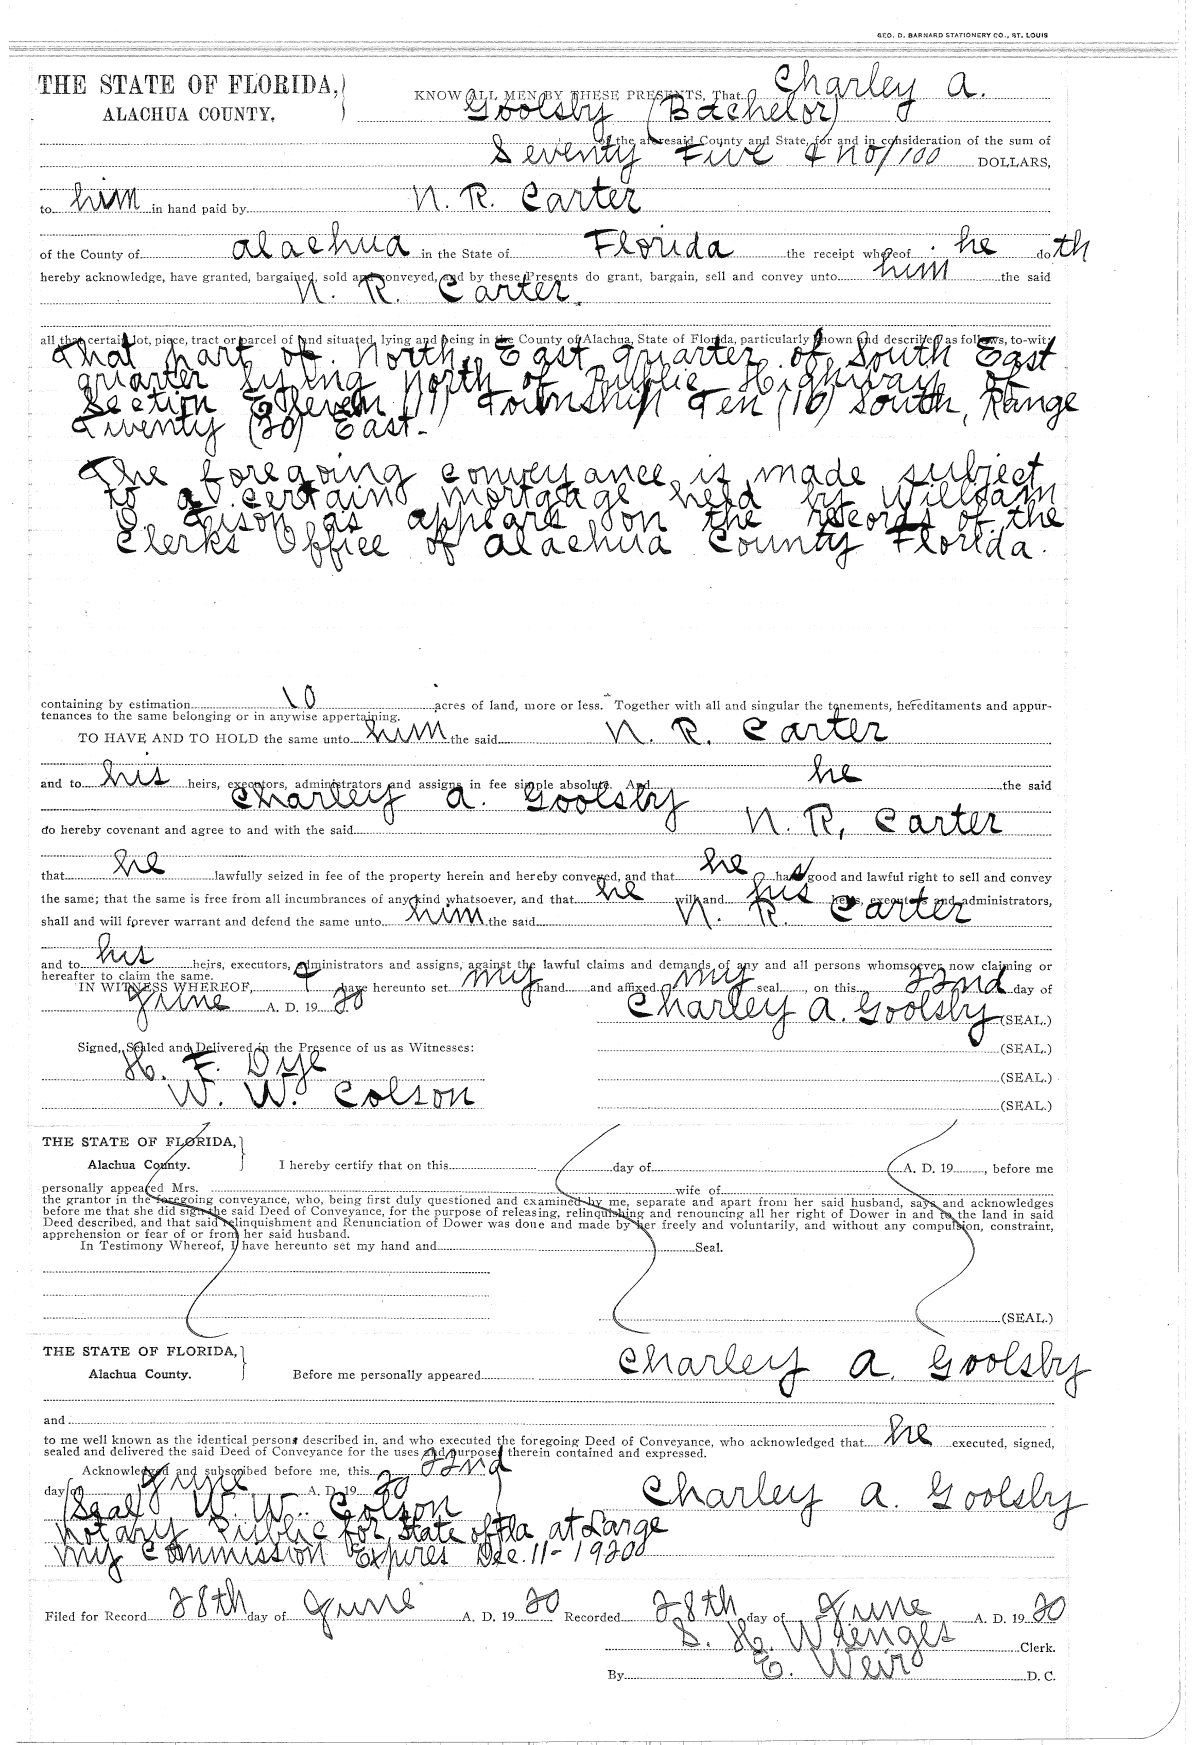 GEO. D. BARNARD STATIONERY CO., ST. LOUIS
THE STATE OF FLORIDA,
ALACHUA COUNTY.
KNOW ALL MEN BY THESE PRESENTS, That Charley A.
Goolsby (Bachelor)
of the aforesaid County and State, for and in consideration of the sum of
Seventy Five & no/100 DOLLARS,
to him in hand paid by N. R. Carter
of the County of Alachua in the State of Florida the receipt whereof he doth
hereby acknowledge, have granted, bargained, sold and conveyed, and by these Presents do grant, bargain, sell and convey unto him the said
N. R. Carter
all that certain lot, piece, tract or parcel of land situated, lying and being in the County of Alachua, State of Florida, particularly known and described as follows, to-wit:
That part of North East quarter of South East
quarter lying North of Public Highway of
Section Eleven (11) Township Ten (10) South, Range
Twenty (20) East.
The foregoing conveyance is made subject
to a certain mortgage held by William
E. Tison as appears on the records of the
Clerks Office of Alachua County Florida.
containing by estimation 10 acres of land, more or less. Together with all and singular the tenements, hereditaments and appur-
tenances to the same belonging or in anywise appertaining.
TO HAVE AND TO HOLD the same unto him the said N. R. Carter
and to his heirs, executors, administrators and assigns in fee simple absolute. And he the said
Charley A. Goolsby
do hereby covenant and agree to and with the said N. R. Carter
that he lawfully seized in fee of the property herein and hereby conveyed, and that he has good and lawful right to sell and convey
the same; that the same is free from all incumbrances of any kind whatsoever, and that he will and his heirs, executors and administrators,
shall and will forever warrant and defend the same unto him the said N. R. Carter
and to his heirs, executors, administrators and assigns, against the lawful claims and demands of any and all persons whomsoever now claiming or
hereafter to claim the same.
IN WITNESS WHEREOF, I have hereunto set my hand and affixed my seal, on this 22nd day of
June A. D. 1920 Charley A. Goolsby (SEAL.)
Signed, Sealed and Delivered in the Presence of us as Witnesses: (SEAL.)
H. F. Dye (SEAL.)
W. W. Colson (SEAL.)
THE STATE OF FLORIDA,
Alachua County. I hereby certify that on this day of A. D. 19 , before me
personally appeared Mrs. wife of
the grantor in the foregoing conveyance, who, being first duly questioned and examined by me, separate and apart from her said husband, says and acknowledges
before me that she did sign the said Deed of Conveyance, for the purpose of releasing, relinquishing and renouncing all her right of Dower in and to the land in said
Deed described, and that said relinquishment and Renunciation of Dower was done and made by her freely and voluntarily, and without any compulsion, constraint,
apprehension or fear of or from her said husband.
In Testimony Whereof, I have hereunto set my hand and Seal.
(SEAL.)
THE STATE OF FLORIDA,
Alachua County. Before me personally appeared Charley A. Goolsby
and
to me well known as the identical person described in, and who executed the foregoing Deed of Conveyance, who acknowledged that he executed, signed,
sealed and delivered the said Deed of Conveyance for the uses and purposes therein contained and expressed.
Acknowledged and subscribed before me, this 22nd
day of June A. D. 1920 Charley A. Goolsby
(Seal) W. W. Colson
Notary Public for State of Fla at Large
My Commission Expires Dec. 11-1920
Filed for Record 28th day of June A. D. 1920 Recorded 28th day of June A. D. 1920
S. H. Wienges Clerk.
By E. Weir D. C.